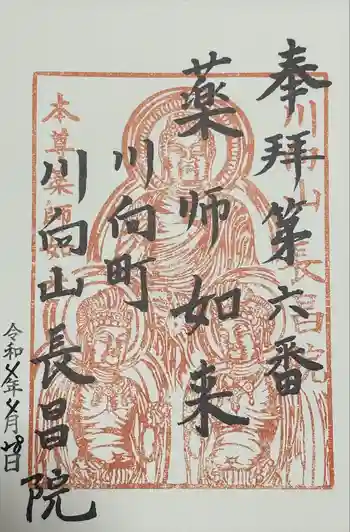 奉拝第六番
薬師如来
川向町
川向山長昌院
令和
年
月
日
川向山長昌院
本尊薬師如来